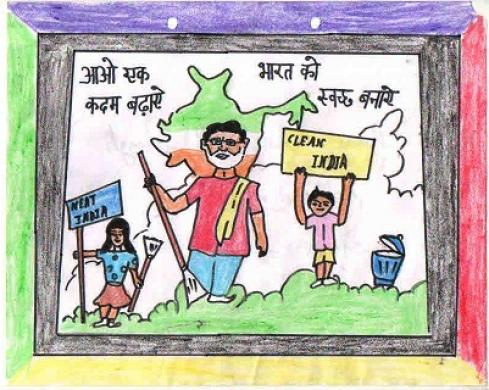 आओ एक
कदम बढ़ाये
भारत को
स्वच्छ बनाये
CLEAN
INDIA
NEAT
INDIA